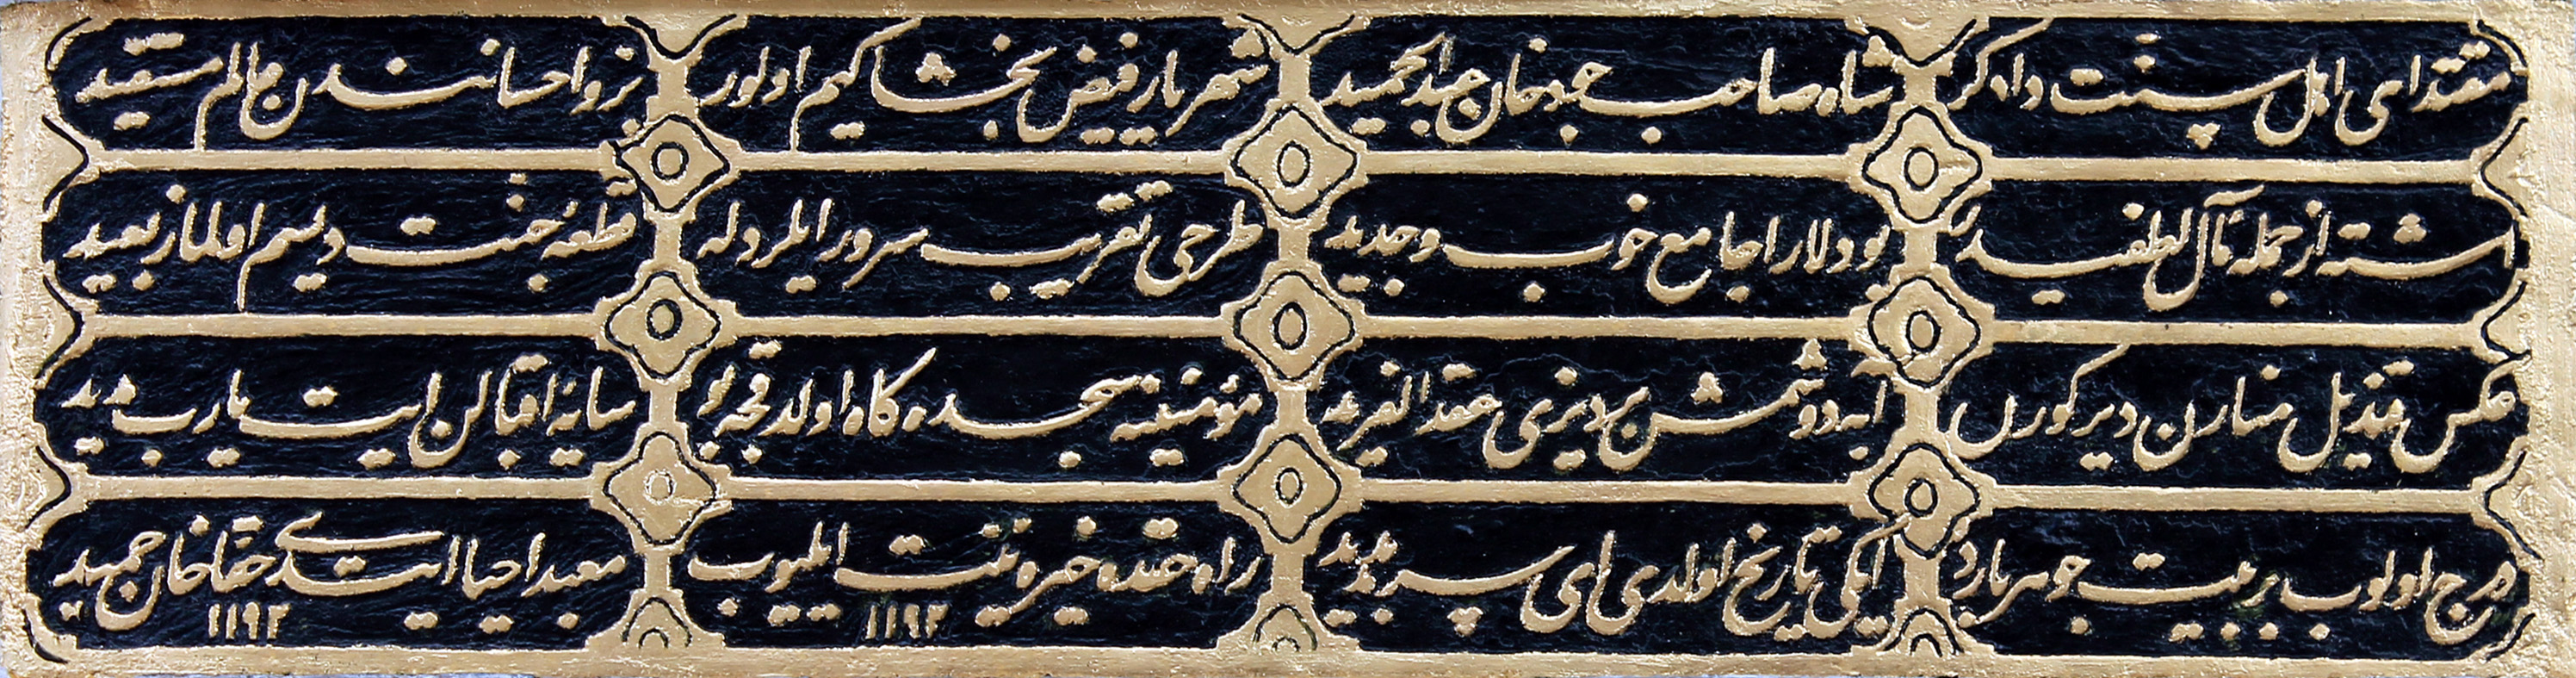 مقتدای اهل سنت دادگر شاه صاحب جود خان عبد الحمید شهریار فیض بخشا کیم اولور بر و احسانندن عالم مستفید
اشته از جمله مآل لطفیدر بو دلارا جامع خوب و جدید طرحی تقریب سرور ایلر دله قطعه جنت دیسم اولماز بعید
عکس قندیل منارن دیر کورن ابه دوشمش بر دیزی عقد الفرید مؤمنینه سجده‌گاه اولدقجه بو سایه اقبالن ایت یا رب مدید
درج اولوب بر بیت جوهردارده ایکی تاریخ اولدی ای پیر مدید راه حقده خیره نیت ایلیوب ۱۱۹۲ معبد احیا ایتدی حقا خان حمید ۱۱۹۲